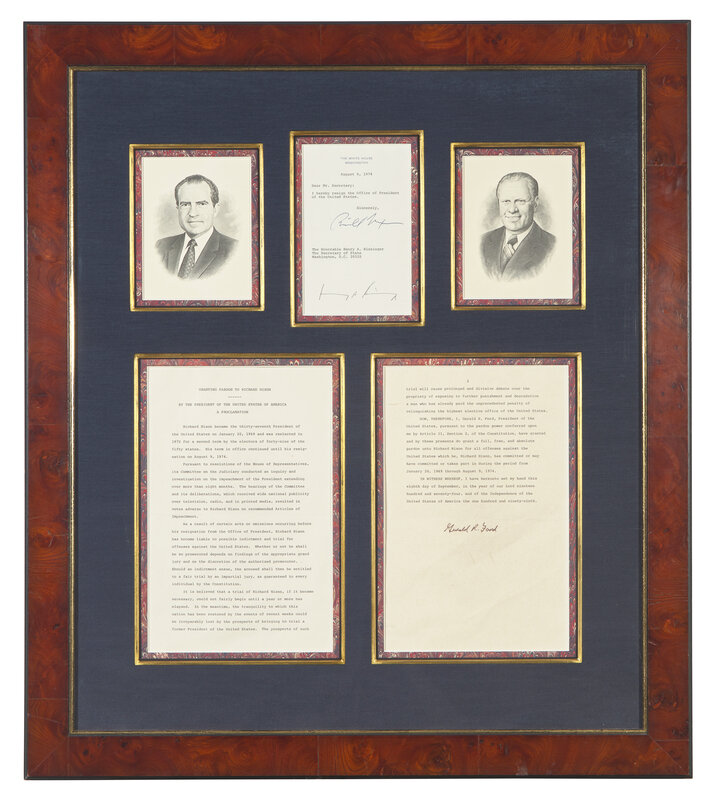 THE WHITE HOUSE
WASHINGTON
August 9, 1974
Dear Mr. Secretary:
I hereby resign the Office of President
of the United States.
Sincerely,
The Honorable Henry A. Kissinger
The Secretary of State
Washington, D.C. 20520
GRANTING PARDON TO RICHARD NIXON
BY THE PRESIDENT OF THE UNITED STATES OF AMERICA
A PROCLAMATION
Richard Nixon became the thirty-seventh President of
the United States on January 20, 1969 and was reelected in
1972 for a second term by the electors of forty-nine of the
fifty states. His term in office continued until his resig-
nation on August 9, 1974.
Pursuant to resolutions of the House of Representatives,
its Committee on the Judiciary conducted an inquiry and
investigation on the impeachment of the President extending
over more than eight months. The hearings of the Committee
and its deliberations, which received wide national publicity
over television, radio, and in printed media, resulted in
votes adverse to Richard Nixon on recommended Articles of
Impeachment.
As a result of certain acts or omissions occurring before
his resignation from the Office of President, Richard Nixon
has become liable to possible indictment and trial for
offenses against the United States. Whether or not he shall
be so prosecuted depends on findings of the appropriate grand
jury and on the discretion of the authorized prosecutor.
Should an indictment ensue, the accused shall then be entitled
to a fair trial by an impartial jury, as guaranteed to every
individual by the Constitution.
It is believed that a trial of Richard Nixon, if it became
necessary, could not fairly begin until a year or more has
elapsed. In the meantime, the tranquility to which this
nation has been restored by the events of recent weeks could
be irreparably lost by the prospects of bringing to trial a
former President of the United States. The prospects of such
2
trial will cause prolonged and divisive debate over the
propriety of exposing to further punishment and degradation
a man who has already paid the unprecedented penalty of
relinquishing the highest elective office of the United States.
NOW, THEREFORE, I, Gerald R. Ford, President of the
United States, pursuant to the pardon power conferred upon
me by Article II, Section 2, of the Constitution, have granted
and by these presents do grant a full, free, and absolute
pardon unto Richard Nixon for all offenses against the
United States which he, Richard Nixon, has committed or may
have committed or taken part in during the period from
January 20, 1969 through August 9, 1974.
IN WITNESS WHEREOF, I have hereunto set my hand this
eighth day of September, in the year of our Lord nineteen
hundred and seventy-four, and of the Independence of the
United States of America the one hundred and ninety-ninth.
Gerald R. Ford